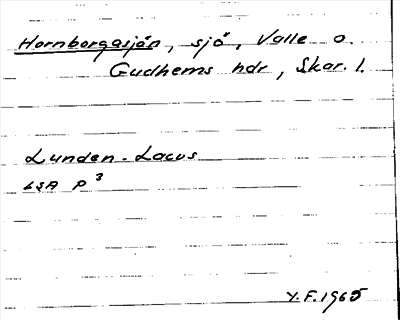 Hornborgasjön, sjö, Valle o.
Gudhems hdr, Skar. l.
Lunden-Lacus
LSA P³
Y.F. 1965